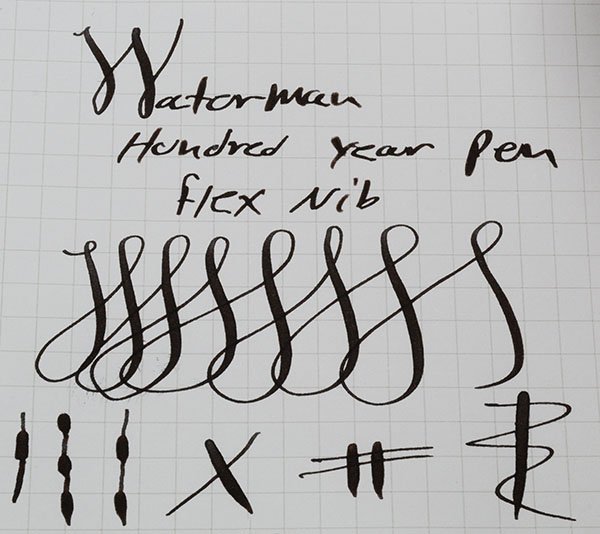 Waterman
Hundred year Pen
flex Nib